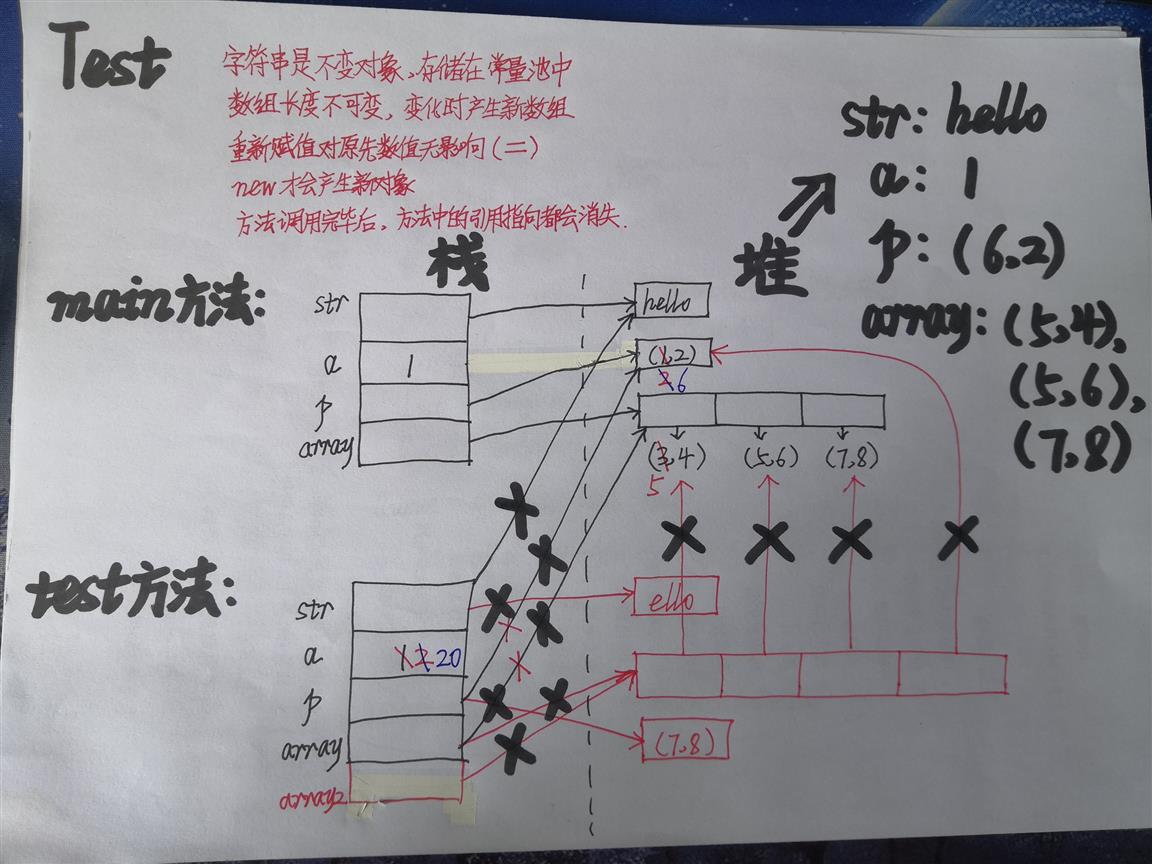 Test
字符串是不变对象，存储在常量池中
数组长度不可变，变化时产生新数组
重新赋值对原先数值无影响（二）
new才会产生新对象
方法调用完毕后，方法中的引用指向都会消失.
str: hello
a: 1
p: (6,2)
array: (5,4),
(5,6),
(7,8)
栈
堆
main方法:
str
hello
a
1
(1,2)
2 6
p
array
(3,4)
(5,6)
(7,8)
5
test方法:
str
ello
a
1 2 20
p
array
(7,8)
array2